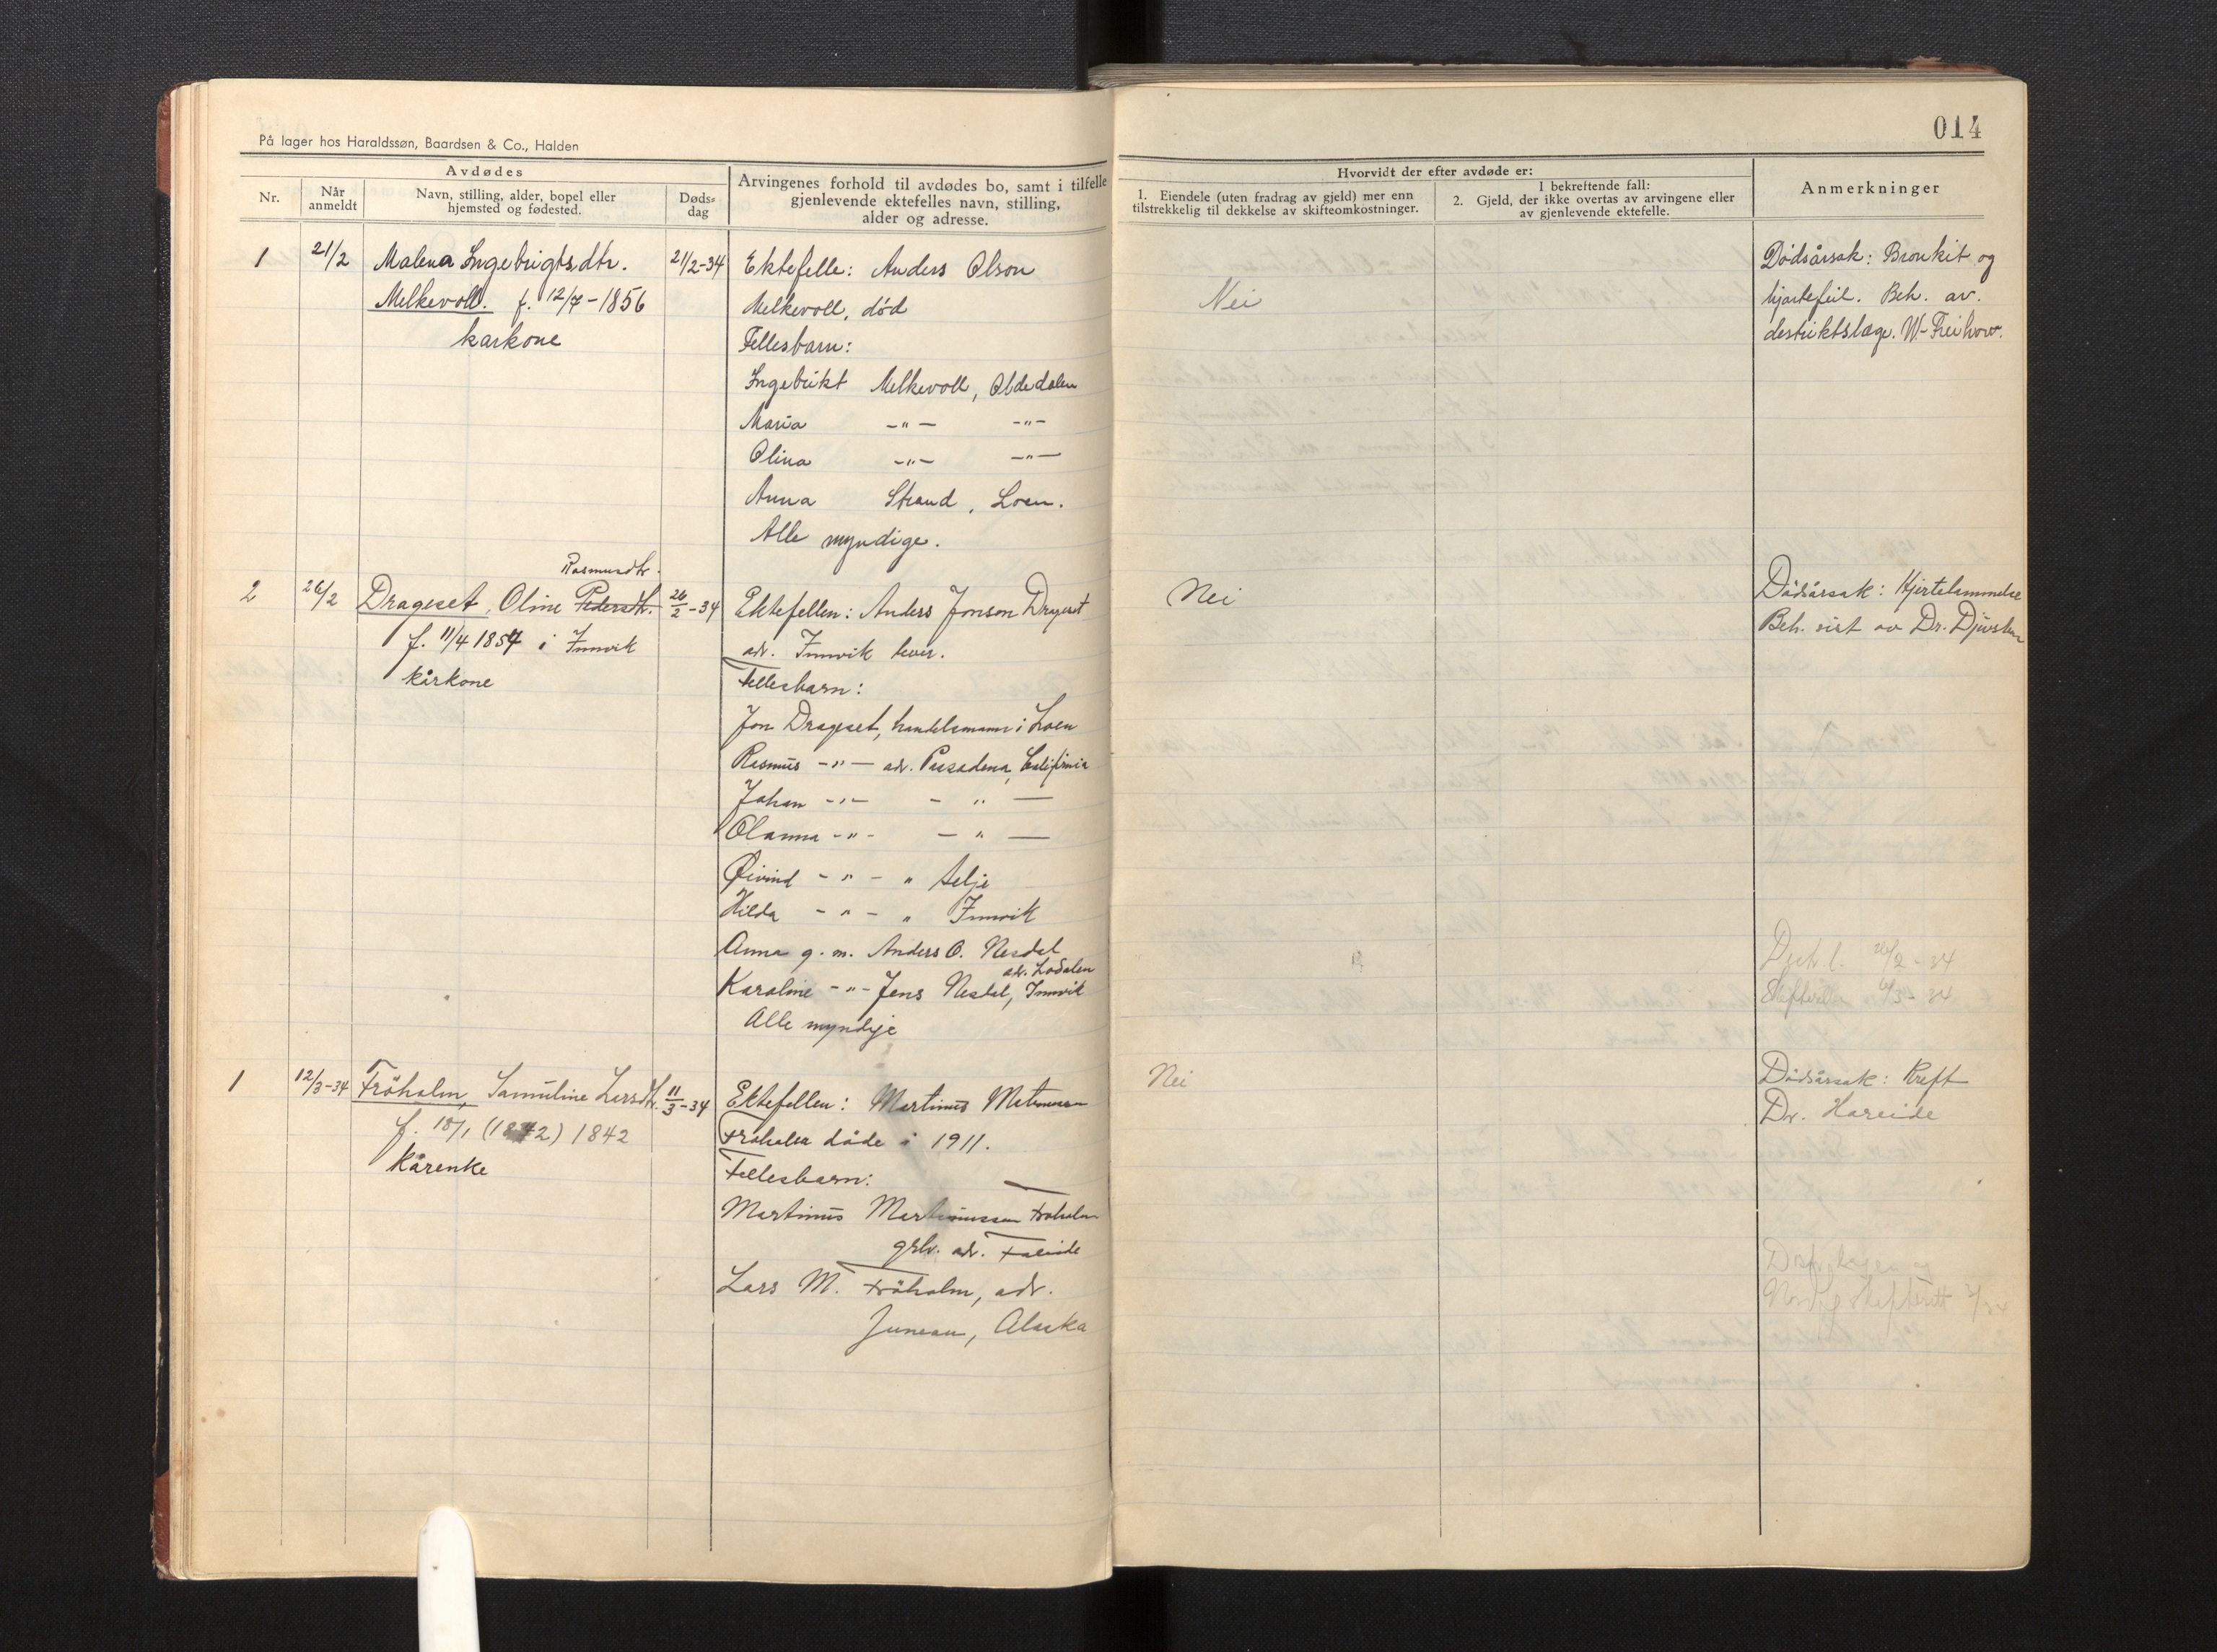 På lager hos Haraldssøn, Baardsen & Co., Halden
Avdødes
Nr.
Når anmeldt
Navn, stilling, alder, bopel eller hjemsted og fødested.
Døds-dag
Arvingenes forhold til avdødes bo, samt i tilfelle
gjenlevende ektefelles navn, stilling,
alder og adresse.
1 21/2 Malena Ingebrigtsdtr. 21/2-34
Melkevoll. f. 12/7-1856
karkone
Ektefelle: Anders Olson
Melkevoll, død
Fellesbarn:
Ingebrikt Melkevoll, Oldedalen
Maria -"- -"-
Olina -"- -"-
Anna Strand, Loen.
Alle myndige.
Rasmusdtr.
2 26/2 Drageset, Oline Pedersdtr. 26/2-34
f. 11/4 1857 i Innvik
kårkone
Ektefellen: Anders Jonson Drageset
adr. Innvik lever.
Fellesbarn:
Jon Drageset, handelsmann i Loen
Rasmus -"- adr. Pasadena, California
Johan -"- - " -
Olanna -"- - " -
Øivind - " - " Selje
Hilda - " - " Innvik
Anna g. m. Anders O. Nesdal
adr. Lodalen
Karoline -"- Jens Nesdal, Innvik
Alle myndige
1 12/3-34 Fröholm, Samuline Larsdtr. 11/3-34
f. 18/1 (1842) 1842
kårenke
Ektefellen: Martinus
Fröholm döde i 1911.
Fellesbarn:
Martinus Martinussen Fröholm
grbr. adr. Faleide
Lars M. Fröholm, adr.
Juneau, Alaska
014
Hvorvidt der efter avdøde er:
1. Eiendele (uten fradrag av gjeld) mer enn
tilstrekkelig til dekkelse av skifteomkostninger.
I bekreftende fall:
2. Gjeld, der ikke overtas av arvingene eller
av gjenlevende ektefelle.
Anmerkninger
Nei
Dödsårsak: Bronkit og
hjartefeil. Beh. av.
destriktslæge.
Nei
Dödsårsak: Hjertelammelse
Beh. sist av Dr.
26/2-34
Nei
Dödsårsak: Kreft
Dr. Hareide